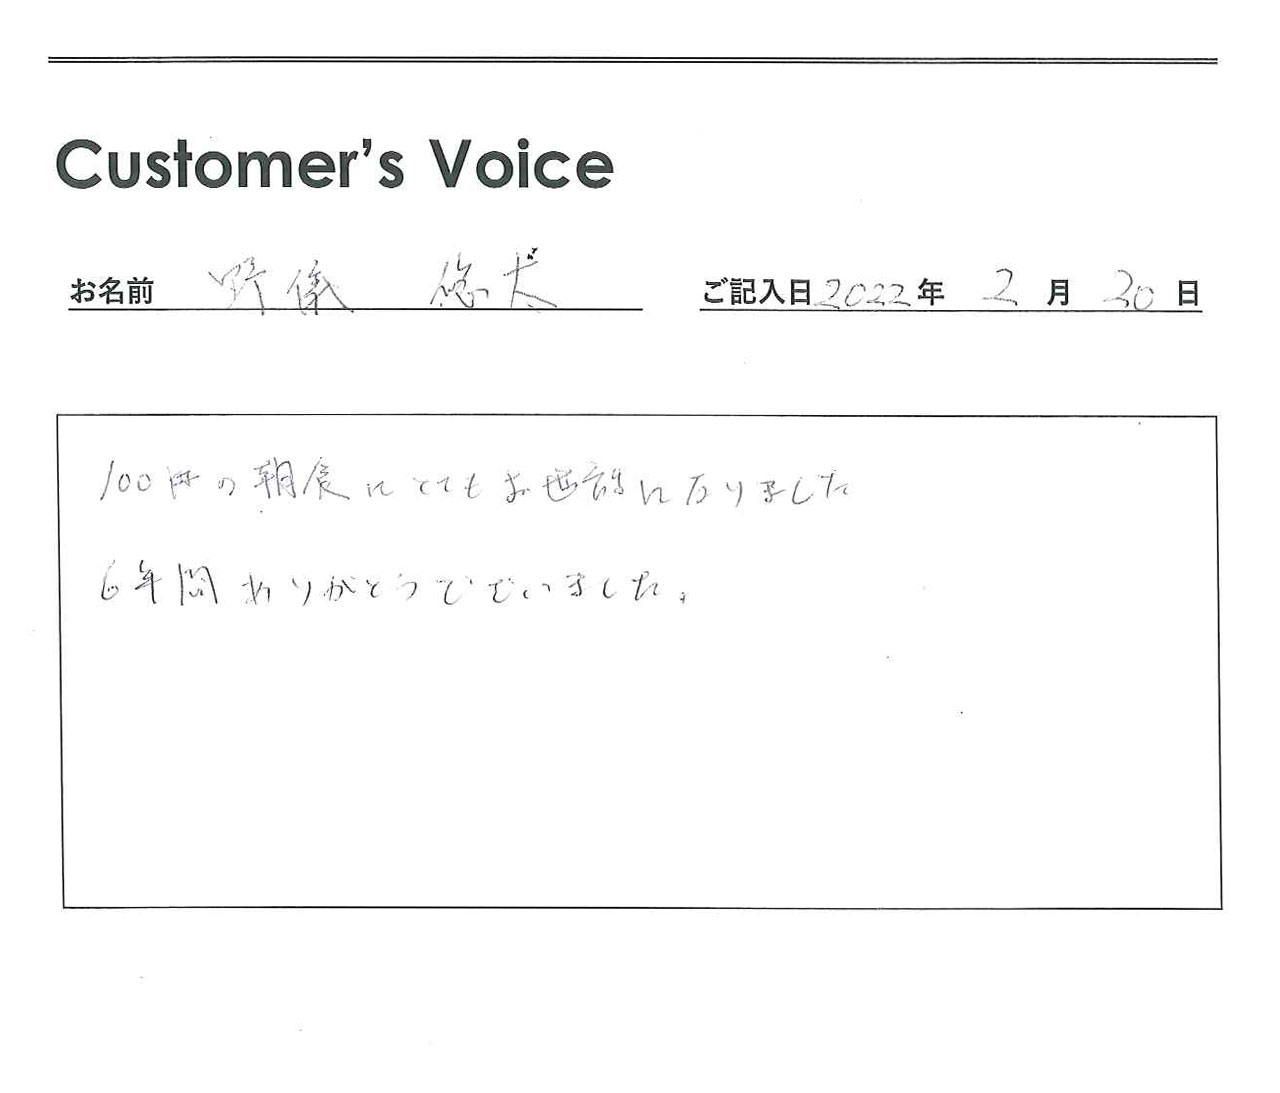 Customer's Voice
お名前 野儀 悠太 ご記入日 2022年 2月 20日
100円の朝食にとてもお世話になりました
6年間ありがとうございました。